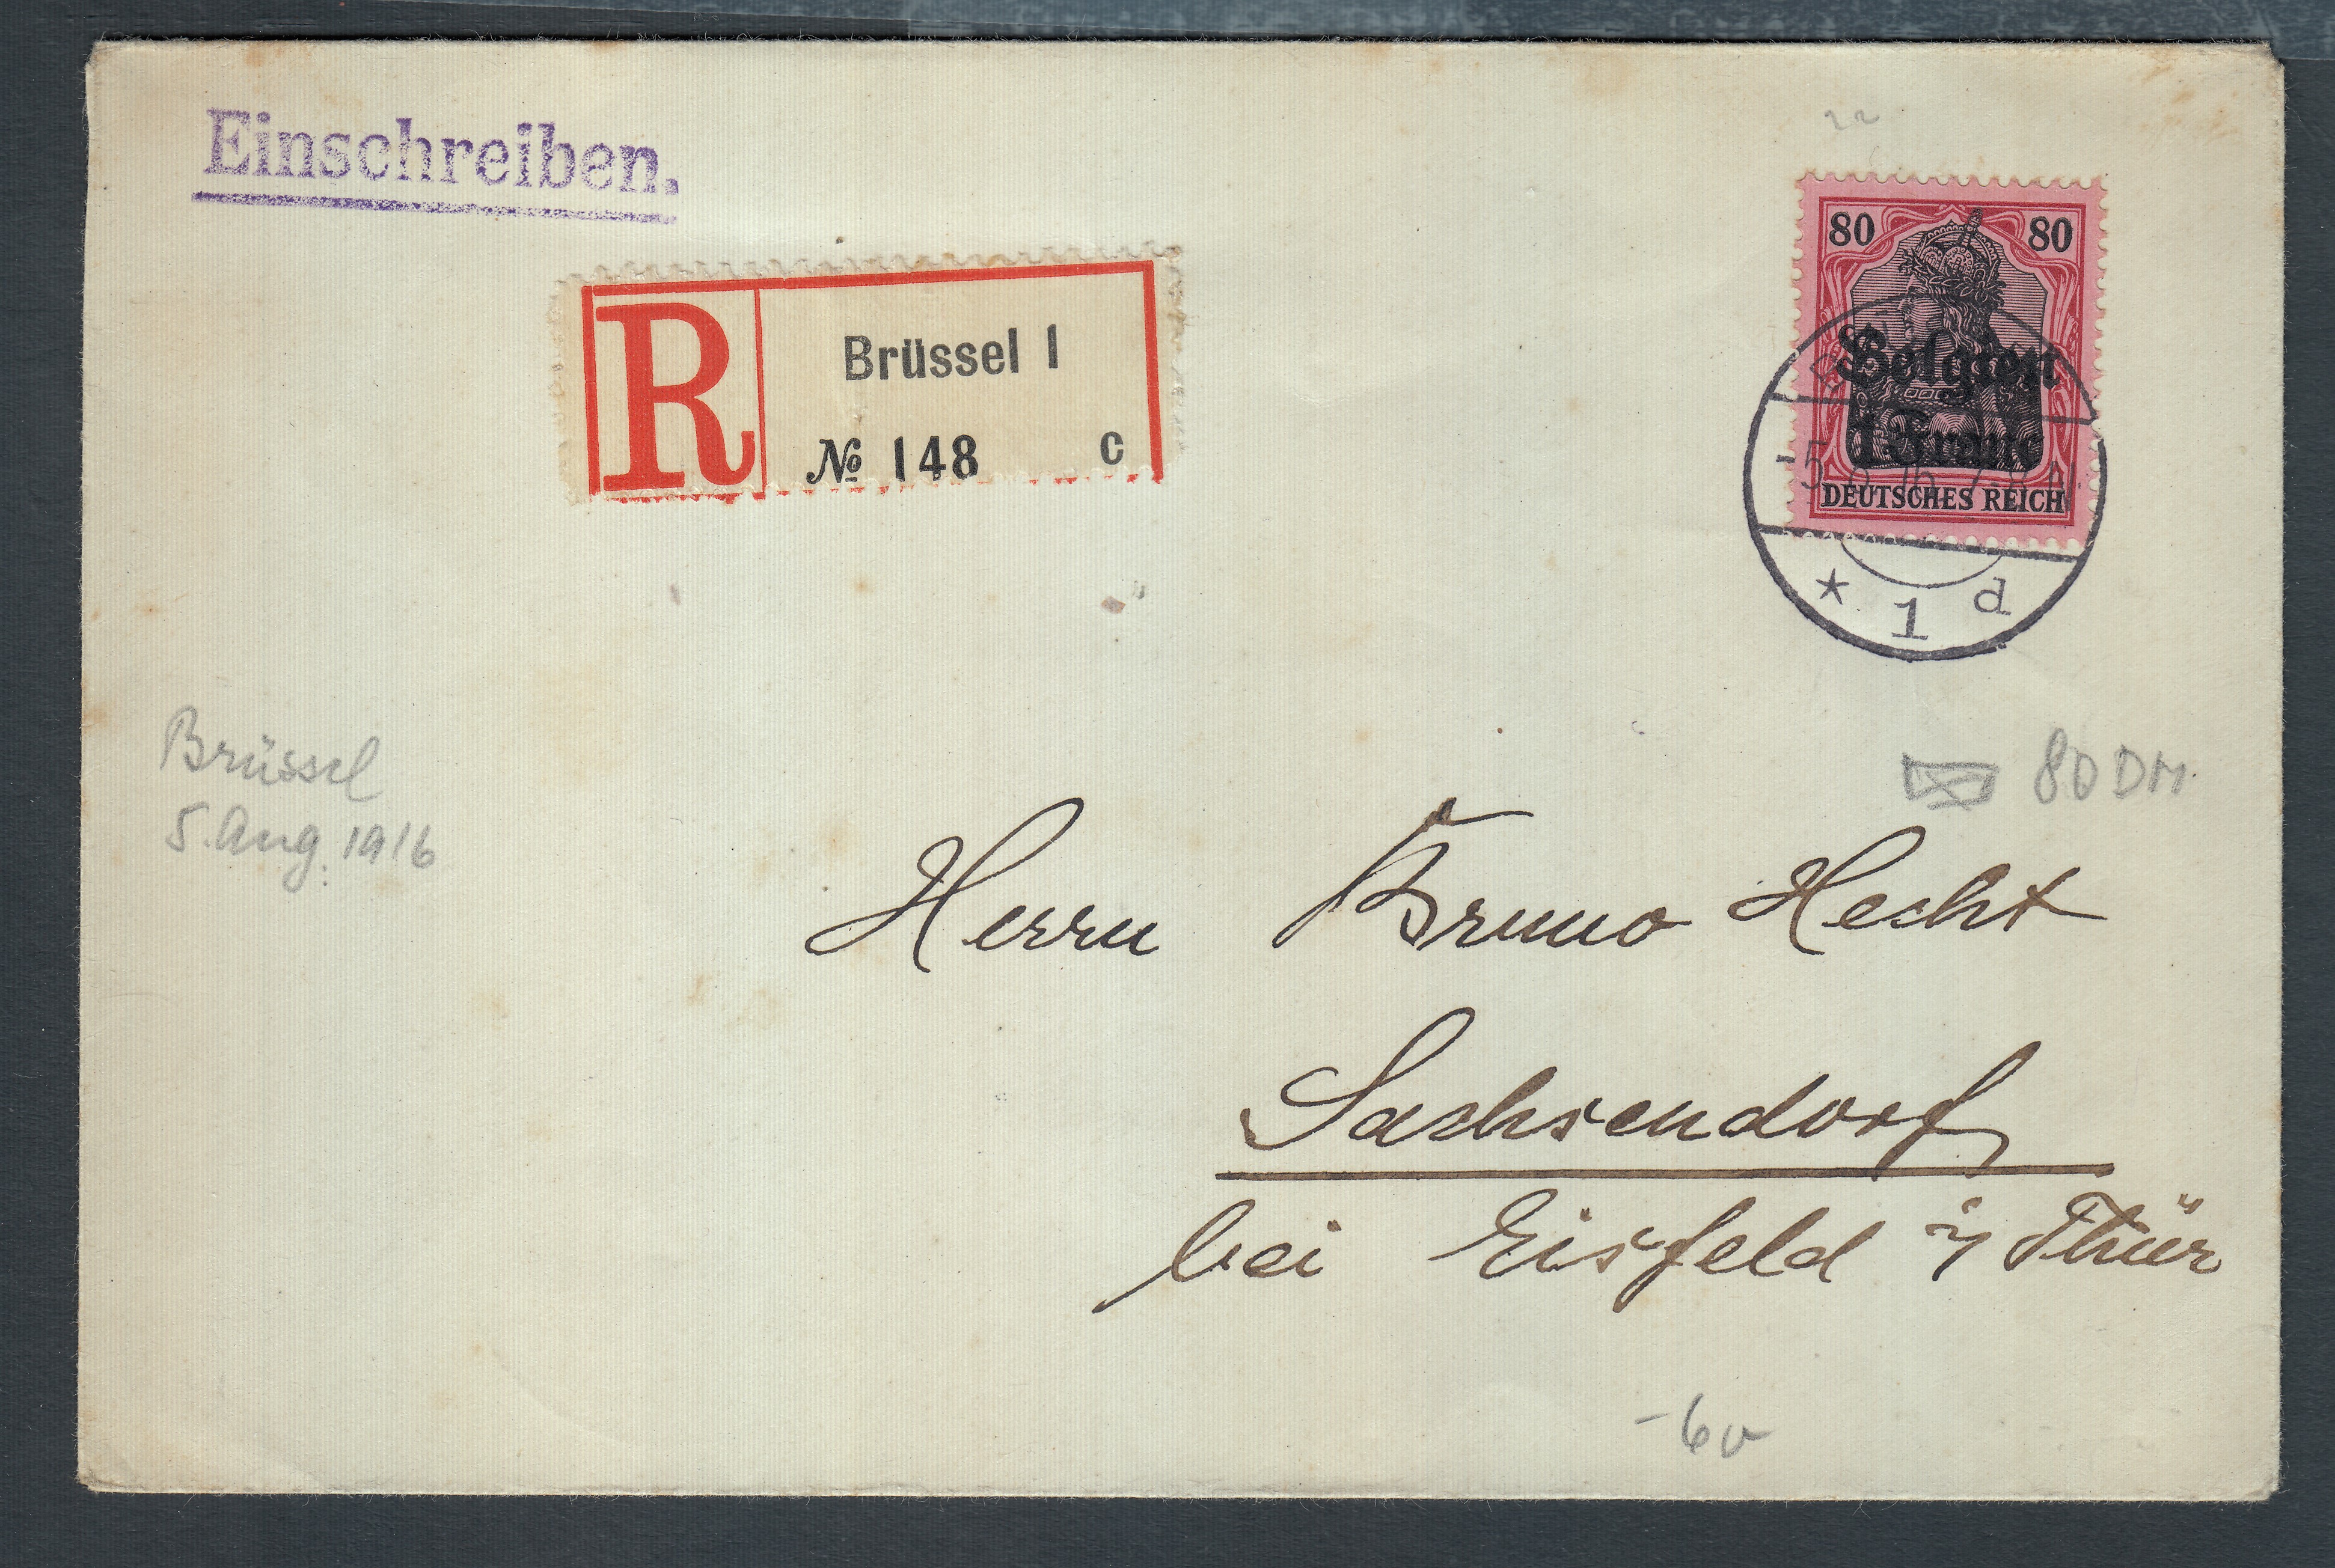 Einschreiben.
R
Brüssel 1
№ 148 c
80 80
Belgien
1 Franc
DEUTSCHES REICH
-5.8.16.7-8N
* 1 d
Brüssel
5. Aug. 1916
80 DM
Herrn Bruno Hecht
Sachsendorf
bei Eisfeld i/ Thür